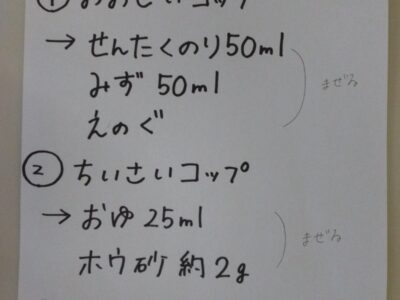 ① おおきいコップ
→ せんたくのり 50ml
みず 50ml
えのぐ
まぜる
② ちいさいコップ
→ おゆ 25ml
ホウ砂 約2g
まぜる